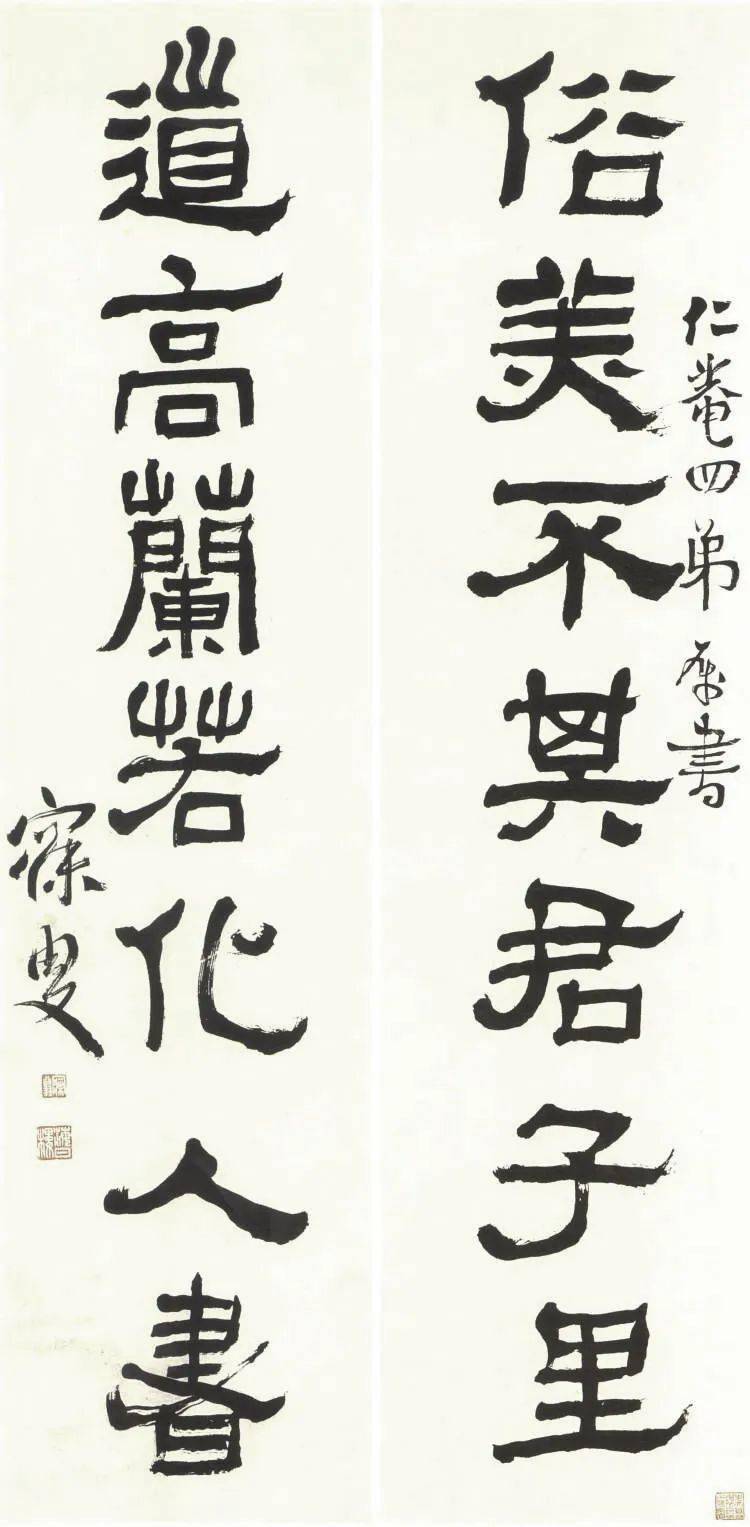 仁菴四弟 書
俗美不其君子里
道高蘭若化人書
寐叟